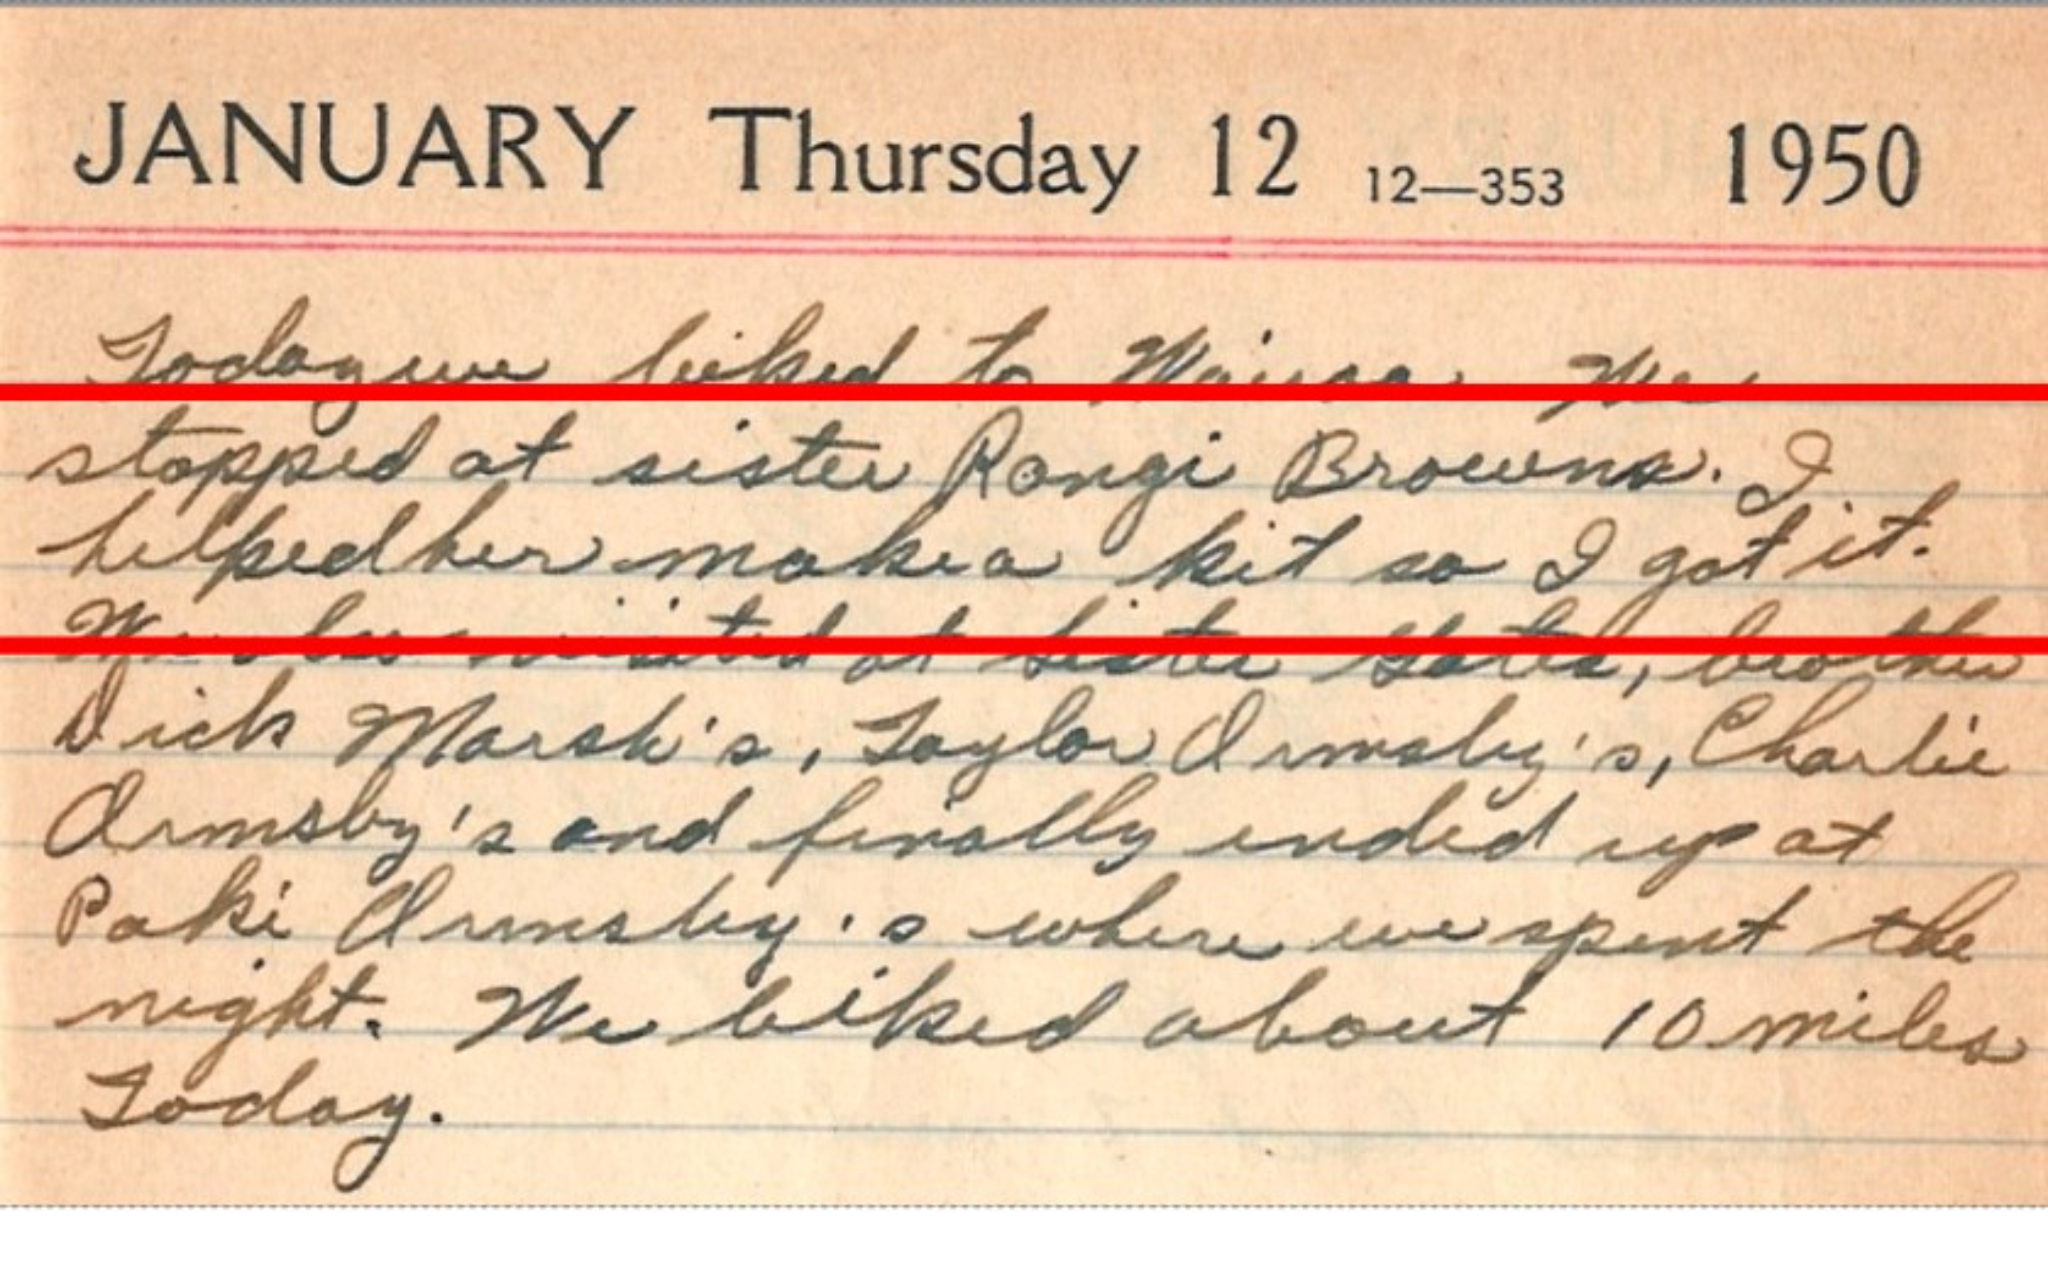 JANUARY Thursday 12 12—353 1950
Today we biked to We
stopped at sister Rangi Browns. I
helped her make a kit so I got it.
We also visited at sister Gates, brother
Dick Marsh's, Taylor Ormsby's, Charlie
Ormsby's and finally ended up at
Paki Ormsby's where we spent the
night. We biked about 10 miles
Today.